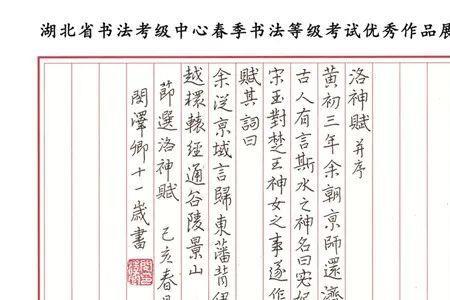 湖北省书法考级中心春季书法等级考试优秀作品展
洛神賦 并序
黄初三年余朝京師還濟
古人有言斯水之神名曰宓
宋玉對楚王神女之事遂作
賦其詞曰
余從京域言歸東藩背伊
越轘轅經通谷陵景山
節選洛神賦 己亥春
閔澤卿十一歲書